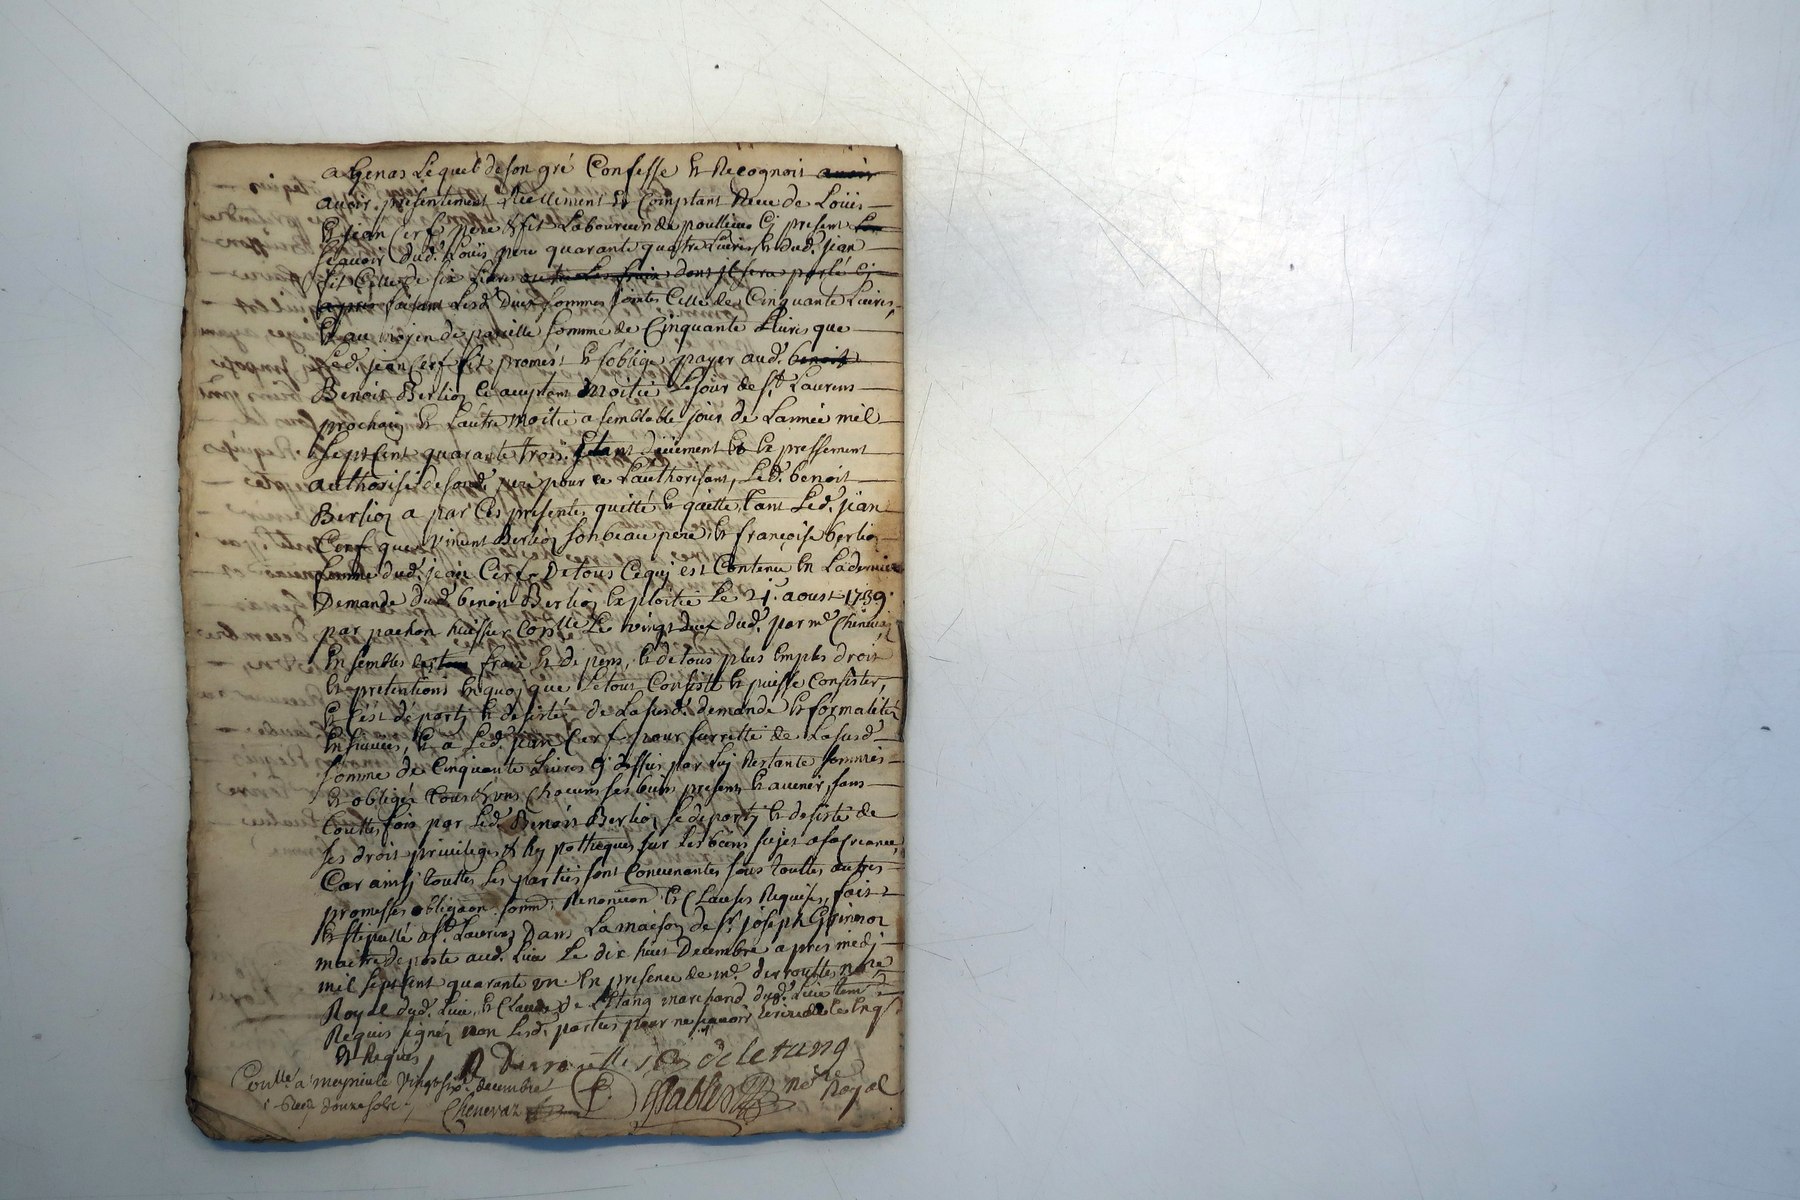 a Genas Lequel de son gré Confesse & Recognoit avoir
avoir presentement Reellement & Comptant Receu de Loüis
& Jean Cerf pere & fils Laboureur de poullieu Cy present
sçavoir dud. Loüis pere quarante quatre Livres, & dud. jean
fils Celle de six livres outre Les frais dont il sera parlé Cy
apres faisant Lesd. Deux sommes jointes Celle de Cinquante Livres,
& au moyen de pareille somme de Cinquante Livres que
Led. jean Cerf fils promest & s'oblige payer aud. benoit
Benoit Berlioz acceptant Moitié Le jour de st. Laurens
prochain & Lautre moitie a semblable jour de Lannée mil
sept Cent quarante trois Etant düement & Expressement
authorisé de sond. pere pour ce Lauthorisant, Led. benoit
Berlioz a par Ces presentes quitté & quitte tant Led. jean
Cerf que Vincent Berlioz son beau pere, & françoise berlioz
femme dud. jean Cerf De tous Ce quy est Contenu En La derniere
Demande dud. benoit Berlioz Exploitée le 21. aoust 1739.
par pachon huissier Conlle Le vingt deux dud. par mr. Chenevaz
Ensembles des tous frais & depens, & de tous plus Emples droit
& pretentions En quoy que Le tout Consiste & puisse Consister,
& s'est départy & desisté de La susd. demande & formalités
En suivies, & a Led. jean Cerf pour surretté de La susd.
somme de Cinquante Livres Cy dessus par Luy Restante
& obligés tous & uns Chacuns ses biens presens & avenir, sans
touttes fois par Led. Benoit Berlioz se departy & desisté de
ses droit privileges & hypotheques sur Les biens sujet a sa Creance,
Car ainsy touttes Les parties sont Convenantes sous touttes autres
promesses obligaon. Renonciaon & Clauses Requises, fait
& stipullé a st. Laurens Dans La maison de sr. joseph Guinon
maitre de poste aud. Lieu Le dix huit Decembre apres midy
mil sept Cent quarante un En presence de mr. desroulles nore
Royal dud. Lieu, & Claude De Létang marchand dud. Lieu tem.
Requis signés non Lesd. parties pour ne sçavoir ecrire de ce Enqs
& Requis
Derroulles De letang
Conllé a meypieule Vingt six decembre
Reçu douze sols Chenevaz Royal